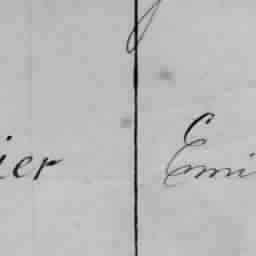 ier Emi